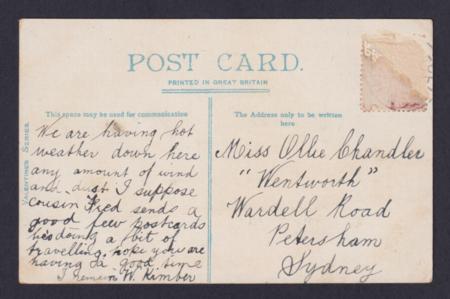 POST CARD.
PRINTED IN GREAT BRITAIN
This space may be used for communication
The Address only to be written
here
VALENTINES SERIES.
We are having hot
weather down here
any amount of wind
and dust I suppose
cousin Fred sends a
good few postcards
hes doing a bit of
travelling. hope you are
having a good time
I remain W. Kimber
Miss Ollie Chandler
"Wentworth"
Wardell Road
Petersham
Sydney